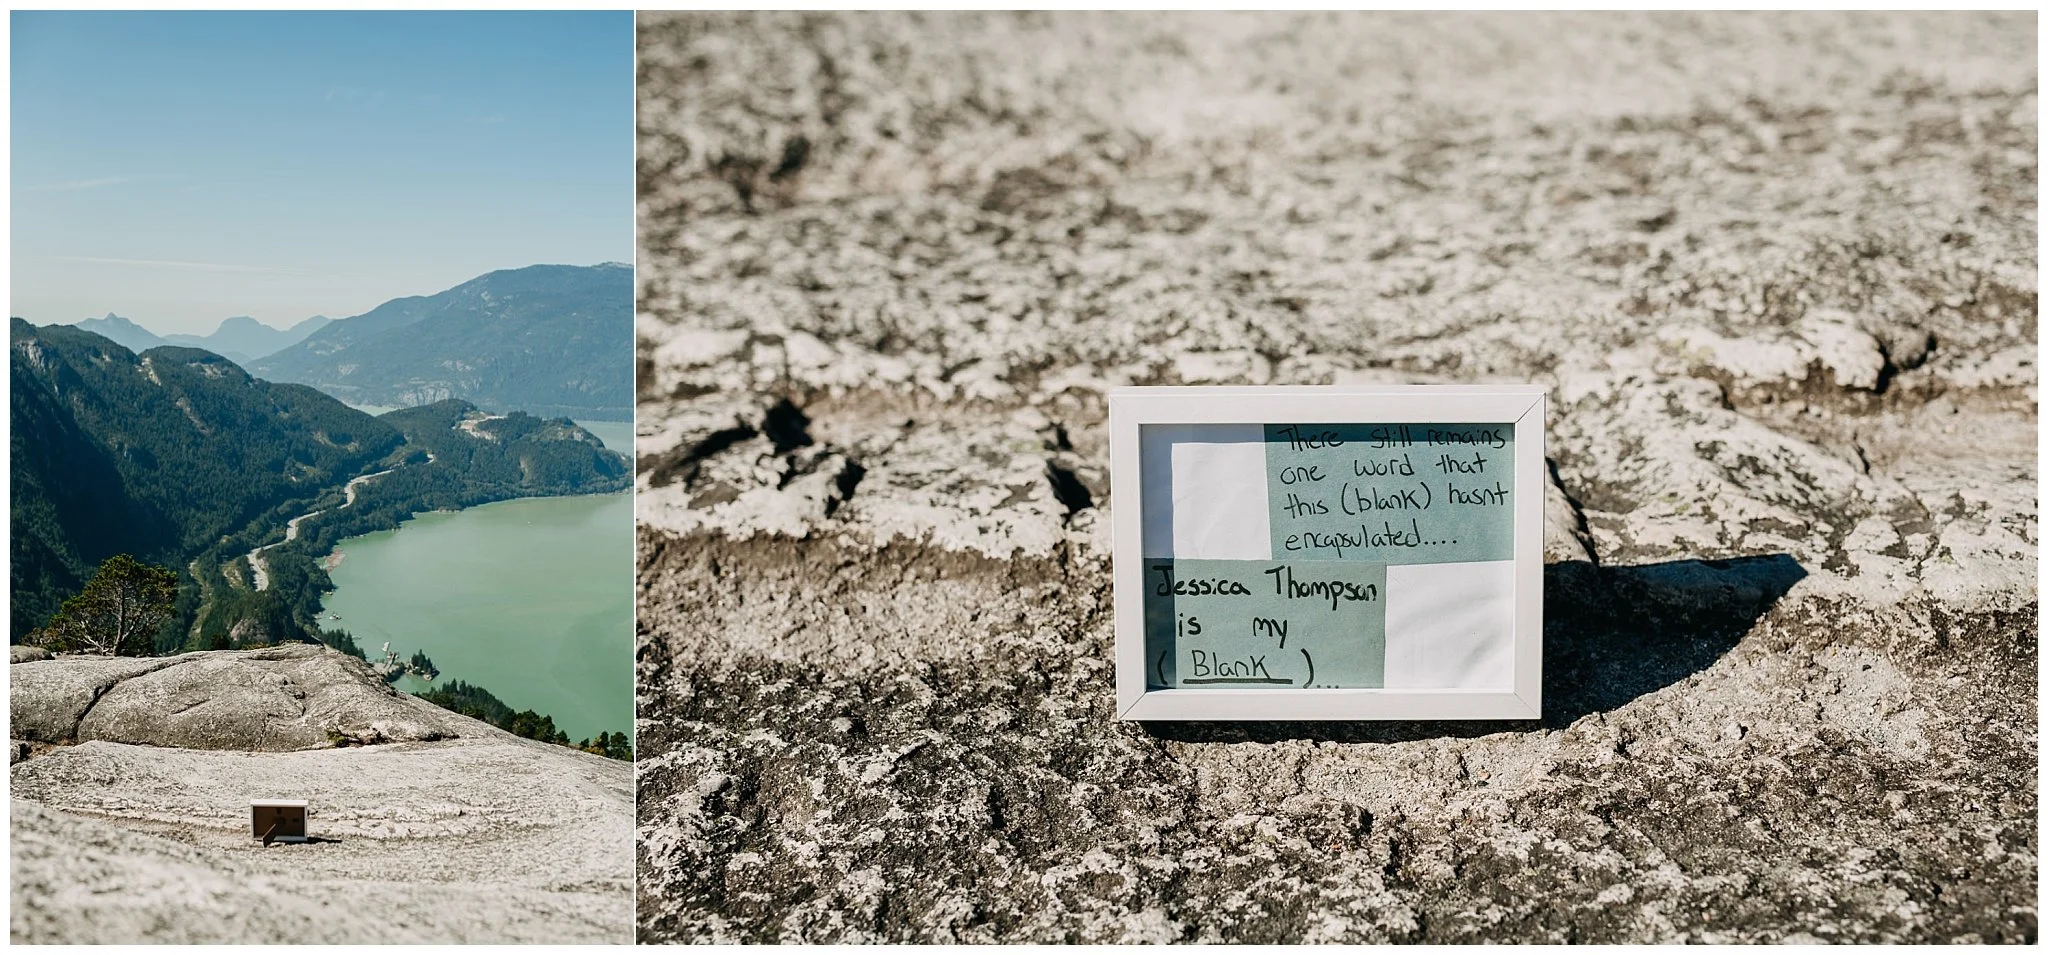 There still remains
one word that
this (blank) hasnt
encapsulated....
Jessica Thompson
is my
( Blank )...